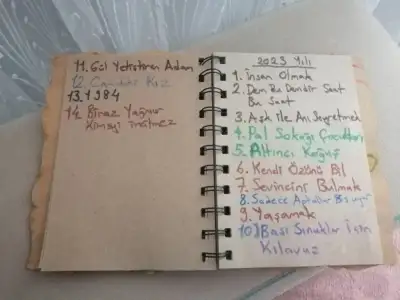 11. Gül Yetiştiren Adam
12. Camdaki Kız
13. 1984
14. Biraz Yağmur
Kimseyi İncitmez
2023 Yılı
1. İnsan Olmak
2. Dem Bu Demdir Saat
Bu Saat
3. Aşk ile Anı Seyretmek
4. Pal Sokağı Çocukları
5. Altıncı Koğuş
6. Kendi Özünü Bil
7. Sevincini Bulmak
8. Sadece Aptallar 8 s uyur
9. Yaşamak
10) Başı Sınuklar İçin
Kılavuz